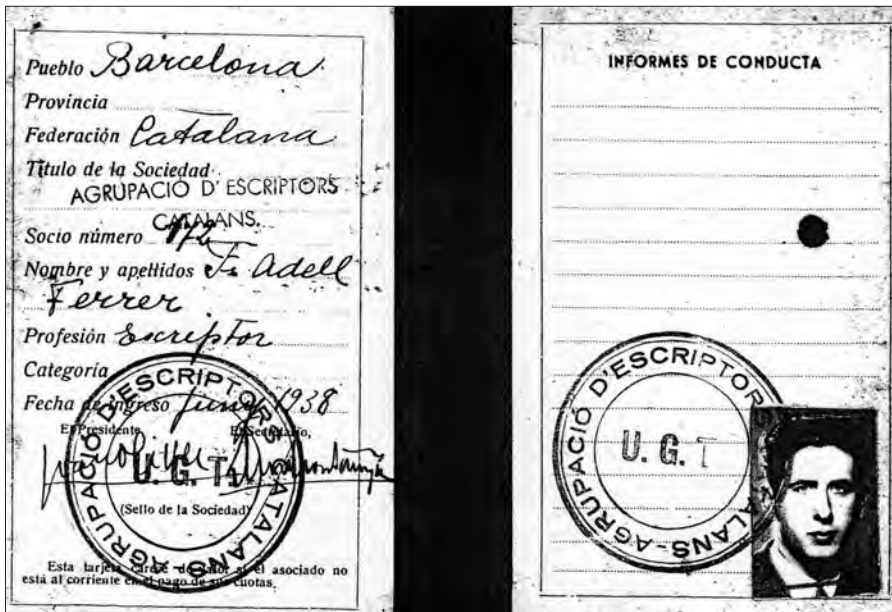 Pueblo Barcelona
Provincia
Federación Catalana
Título de la Sociedad
AGRUPACIÓ D' ESCRIPTORS
CATALANS.
Socio número 172
Nombre y apellidos F. Adell
Ferrer
Profesión Escriptor
Categoría
Fecha de ingreso Juny 1938
El Presidente, El Secretario,
AGRUPACIÓ D'ESCRIPTORS CATALANS-
U. G. T.
(Sello de la Sociedad)
Esta tarjeta carece de valor si el asociado no
está al corriente en el pago de sus cuotas.
INFORMES DE CONDUCTA
AGRUPACIÓ D'ESCRIPTOR ALANS-
U. G. T